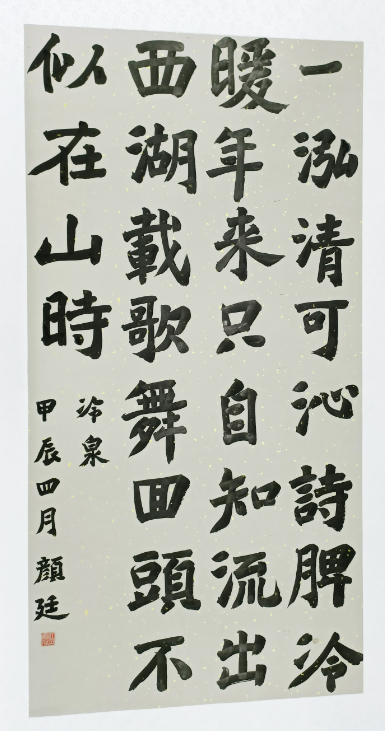 一泓清可沁詩脾冷
暖年来只自知流出
西湖載歌舞回頭不
似在山時
冷泉
甲辰四月 顏廷